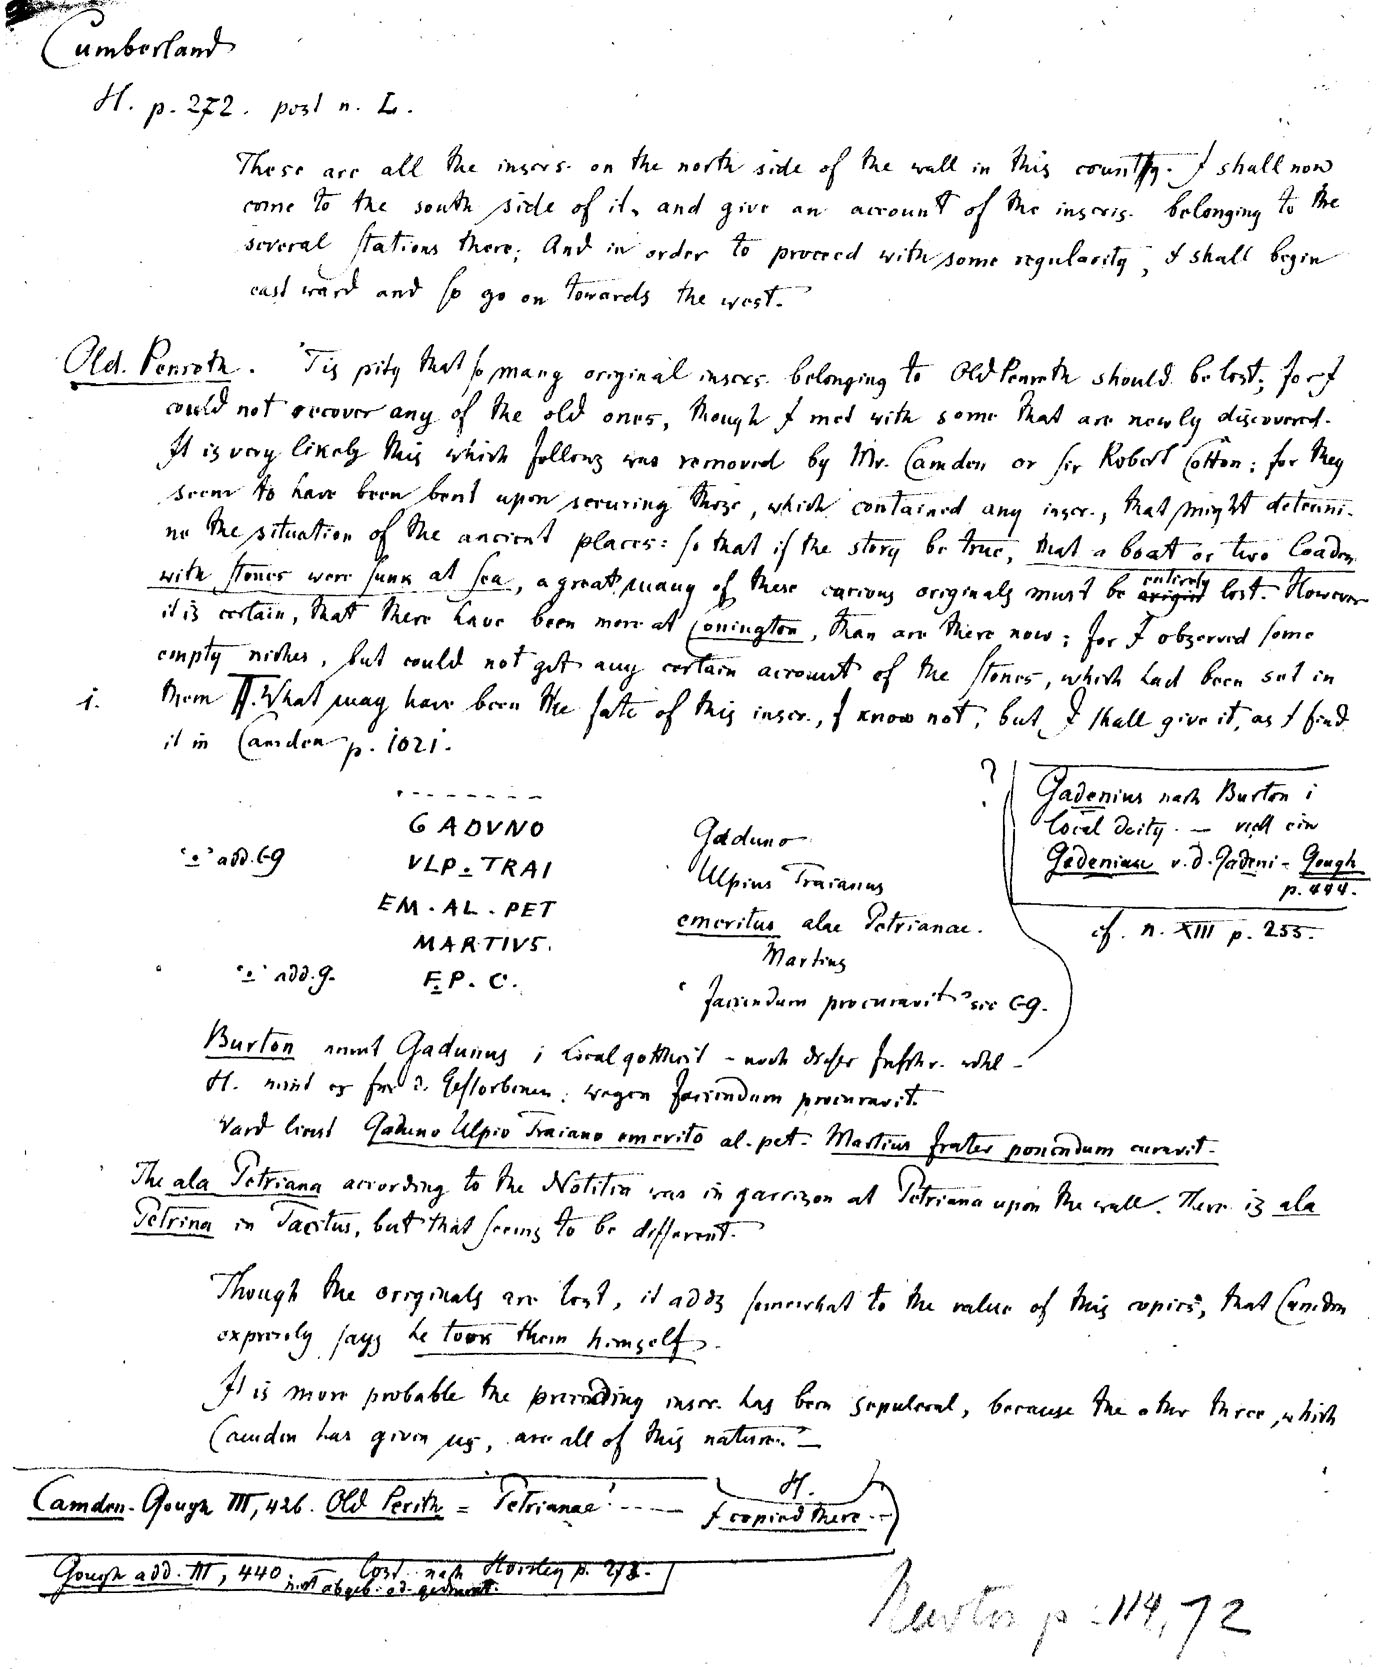 Cumberland
H. p. 272. post n. L.
These are all the inscrs. on the north side of the wall in this county. I shall now
come to the south side of it, and give an account of the inscris. belonging to the
several stations there; And in order to proceed with some regularity, I shall begin
east ward and so go on towards the west.
Old. Penreth. 'Tis pity that so many original inscrs. belonging to Old Penreth should be lost; for I
could not recover any of the old ones, though I met with some that are newly discovered.
It is very likely this which follows was removed by Mr. Camden or Sir Robert Cotton; for they
seem to have been bent upon securing those, which contained any inscr., that might determi-
ne the situation of the ancient places: so that if the story be true, that a boat or two loaden
with stones were sunk at sea, a great many of these curious originals must be entirely lost. However
it is certain, that there have been more at Conington, than are there now; for I observed some
empty niches, but could not get any certain account of the stones, which had been set in
i. them. What may have been the fate of this inscr., I know not, but I shall give it, as I find
it in Camden p. 1021.
- - - - - - - -
GADVNO Gaduno
"." add. Gg VLP. TRAI Ulpius Traianus
EM. AL. PET emeritus alae Petrianae.
MARTIVS. Martius
"." add. g. F.P. C. "faciendum procuravit" sic Gg.
? Gadenius nach Burton i
local deity. — viell ein
Gadeniase v. d. Gadeni - Gough
p. 444.
cf. n. XIII p. 255.
Burton nimt Gadunus i Localgottheit - nach dieser Inschr. wohl -
H. nimt es für d. Gestorbenen. wegen faciendum procuravit.
Vard liest Gaduno Ulpio Traiano emerito al. pet. Martius frater ponendum curavit.
The ala Petriana according to the Notitia was in garrison at Petriana upon the wall. There is ala
Petrina in Tacitus, but that seems to be different.
Though the originals are lost, it adds somewhat to the value of this copies, that Camden
expressly says he took them himself.
It is more probable the preceeding inscr. has been sepulcral, because the other three, which
Camden has given us, are all of this nature." —
H.
Camden-Gough III, 426. Old Perith = Petrianae! ---- I copied there --
Gough add. III, 440. Lost nach Horsley p. 273.
nicht abgeb. od.
Newton p. 114, 72